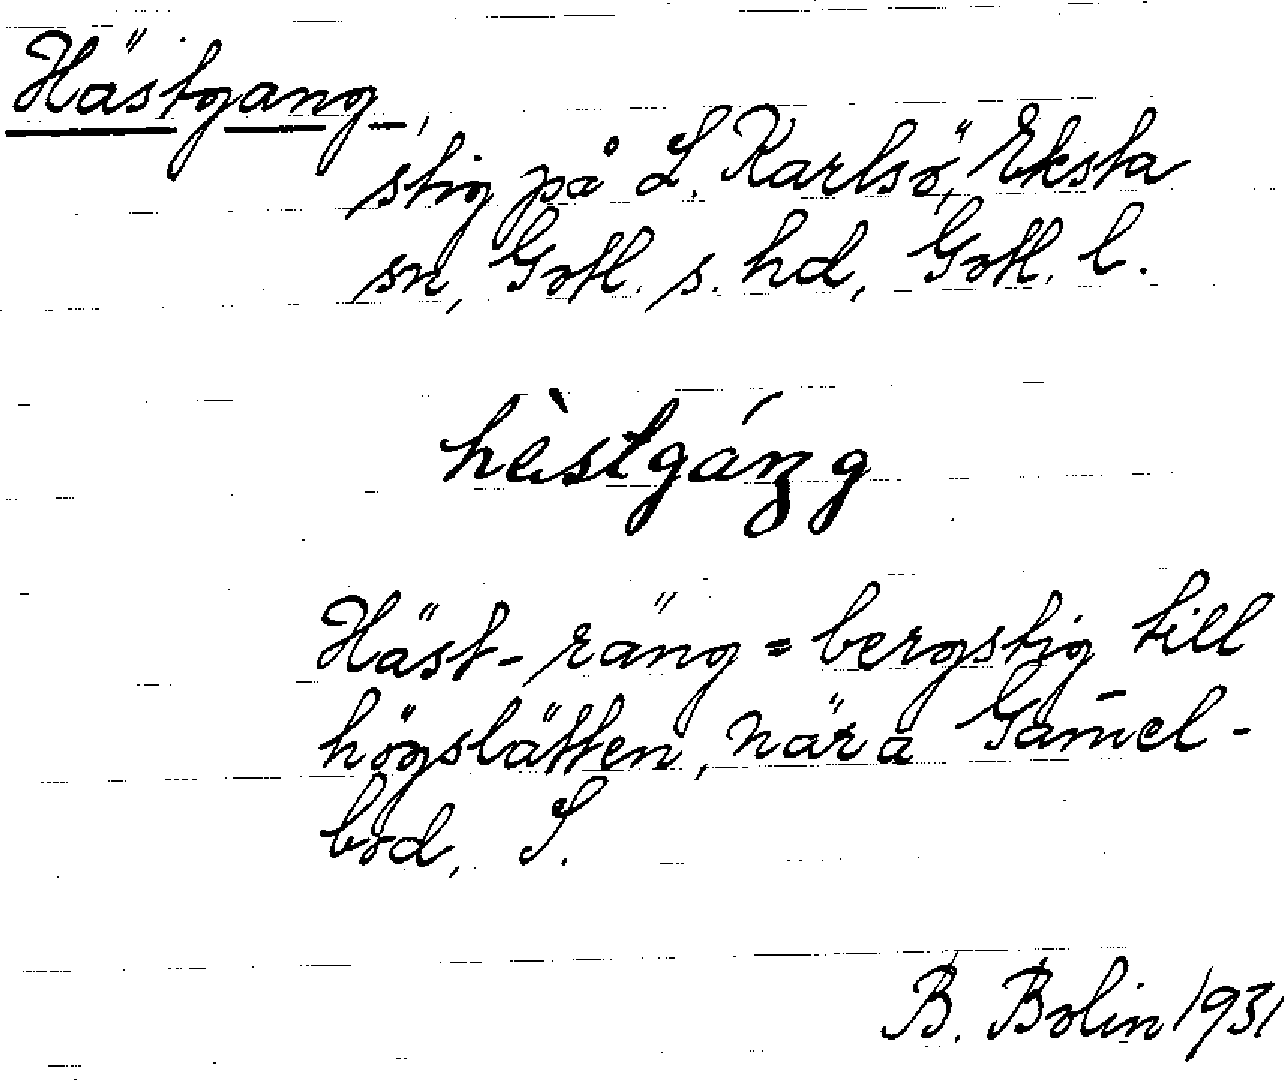 Hästgang,
stig på L. Karlsö, Eksta
sn, Gotl. s. hd, Gotl. l.
hèstgáŋg
Häst-räng = bergstig till
högslätten, nära Gam̄el-
bod, S.
B. Bolin 1931